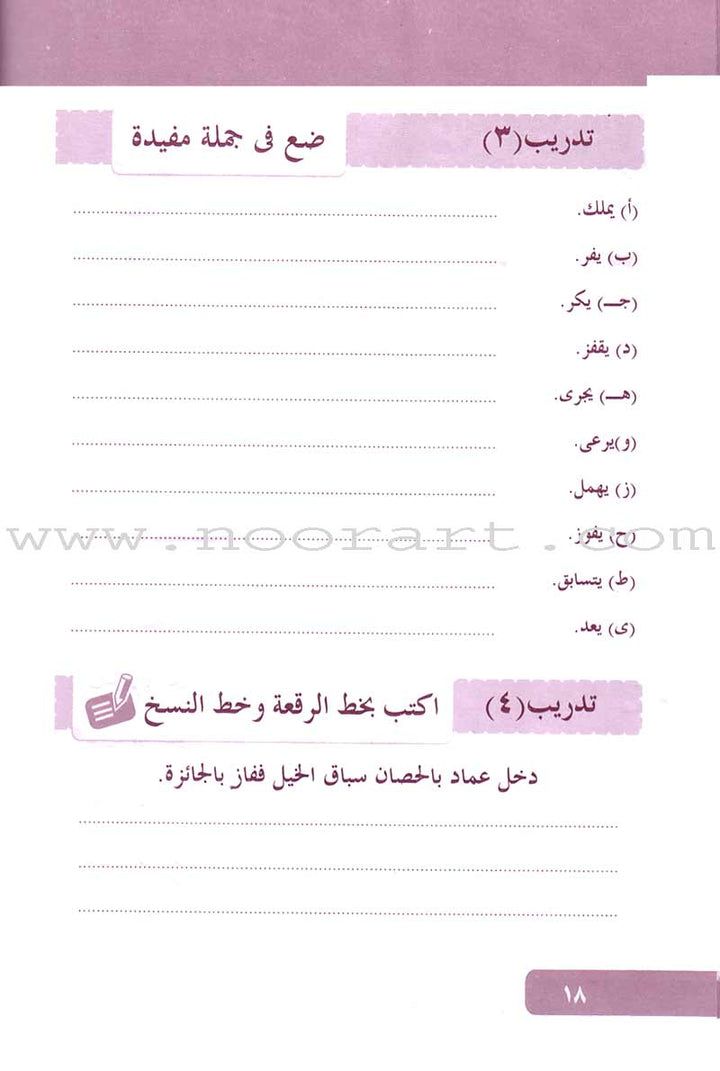 تدريب (٣) ضع فى جملة مفيدة
(أ) يملك. ........................
(ب) يفر. ........................
(جـ) يكر. ........................
(د) يقفز. ........................
(هـ) يجرى. ........................
(و)يرعى. ........................
(ز) يهمل. ........................
www.noorart.com
(ح) يفوز. ........................
(ط) يتسابق. ........................
(ى) يعد. ........................
تدريب (٤) اكتب بخط الرقعة وخط النسخ
دخل عماد بالحصان سباق الخيل ففاز بالجائزة.
١٨